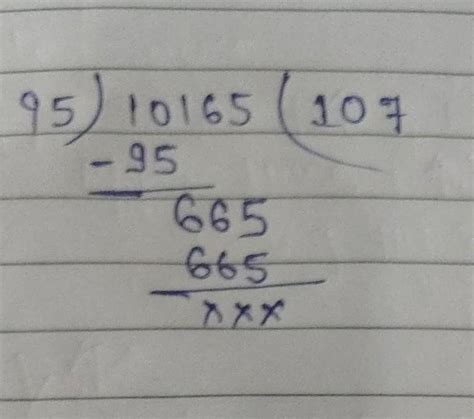 95) 10165 ( 107
- 95
665
665
- xxx